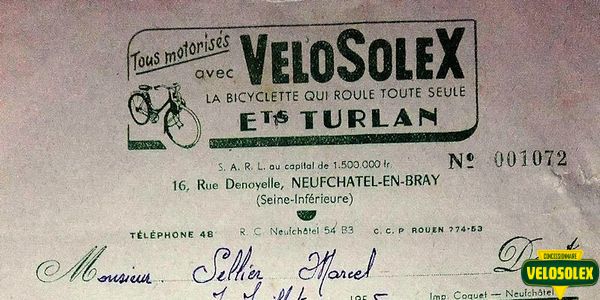 Tous motorisés
avec VELOSOLEX
LA BICYCLETTE QUI ROULE TOUTE SEULE
ETS TURLAN
S. A. R. L. au capital de 1.500.000 fr.
No 001072
16, Rue Denoyelle, NEUFCHATEL-EN-BRAY
(Seine-Inférieure)
TÉLÉPHONE 48 R. C. Neufchâtel 54 B3 C. C. P ROUEN 774-53
Monsieur Sellier Marcel
Imp. Coquet - Neufchâtel
CONCESSIONNAIRE
VELOSOLEX